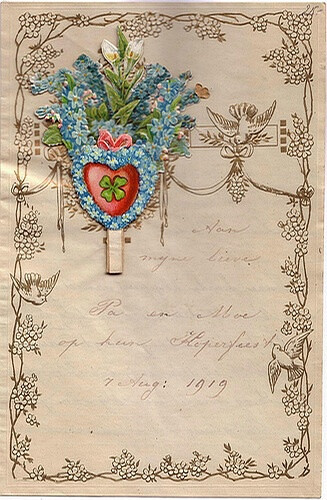 Aan
mijne lieve
Pa en Moe
op hun Koperfeest
7 Aug: 1919